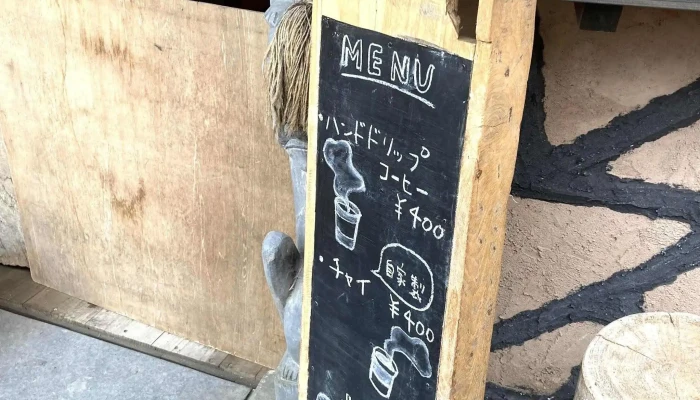 MENU
・ハンドドリップ
コーヒー
¥400
・チャイ
自家製
¥400